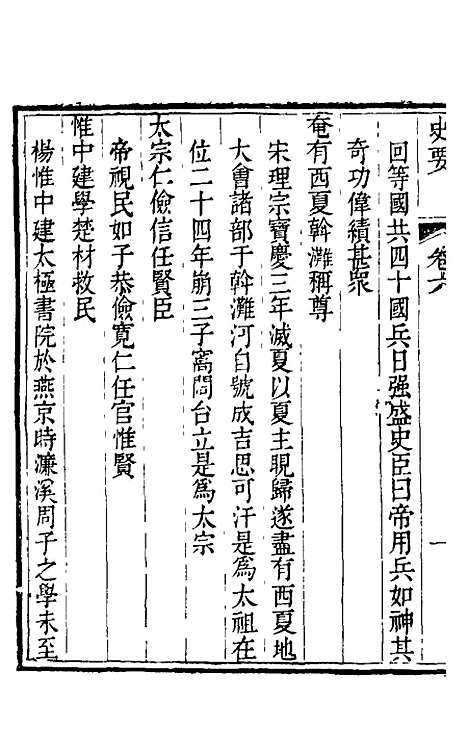 史要
卷六
一
回等國共四十國兵日强盛史臣曰帝用兵如神其
奇功偉績甚衆
奄有西夏斡灘稱尊
宋理宗寶慶三年滅夏以夏主睍歸遂盡有西夏地
大會諸部于斡灘河自號成吉思可汗是爲太祖在
位二十四年崩三子窩闊台立是爲太宗
太宗仁儉信任賢臣
帝視民如子恭儉寬仁任官惟賢
惟中建學楚材救民
楊惟中建太極書院於燕京時濂溪周子之學未至